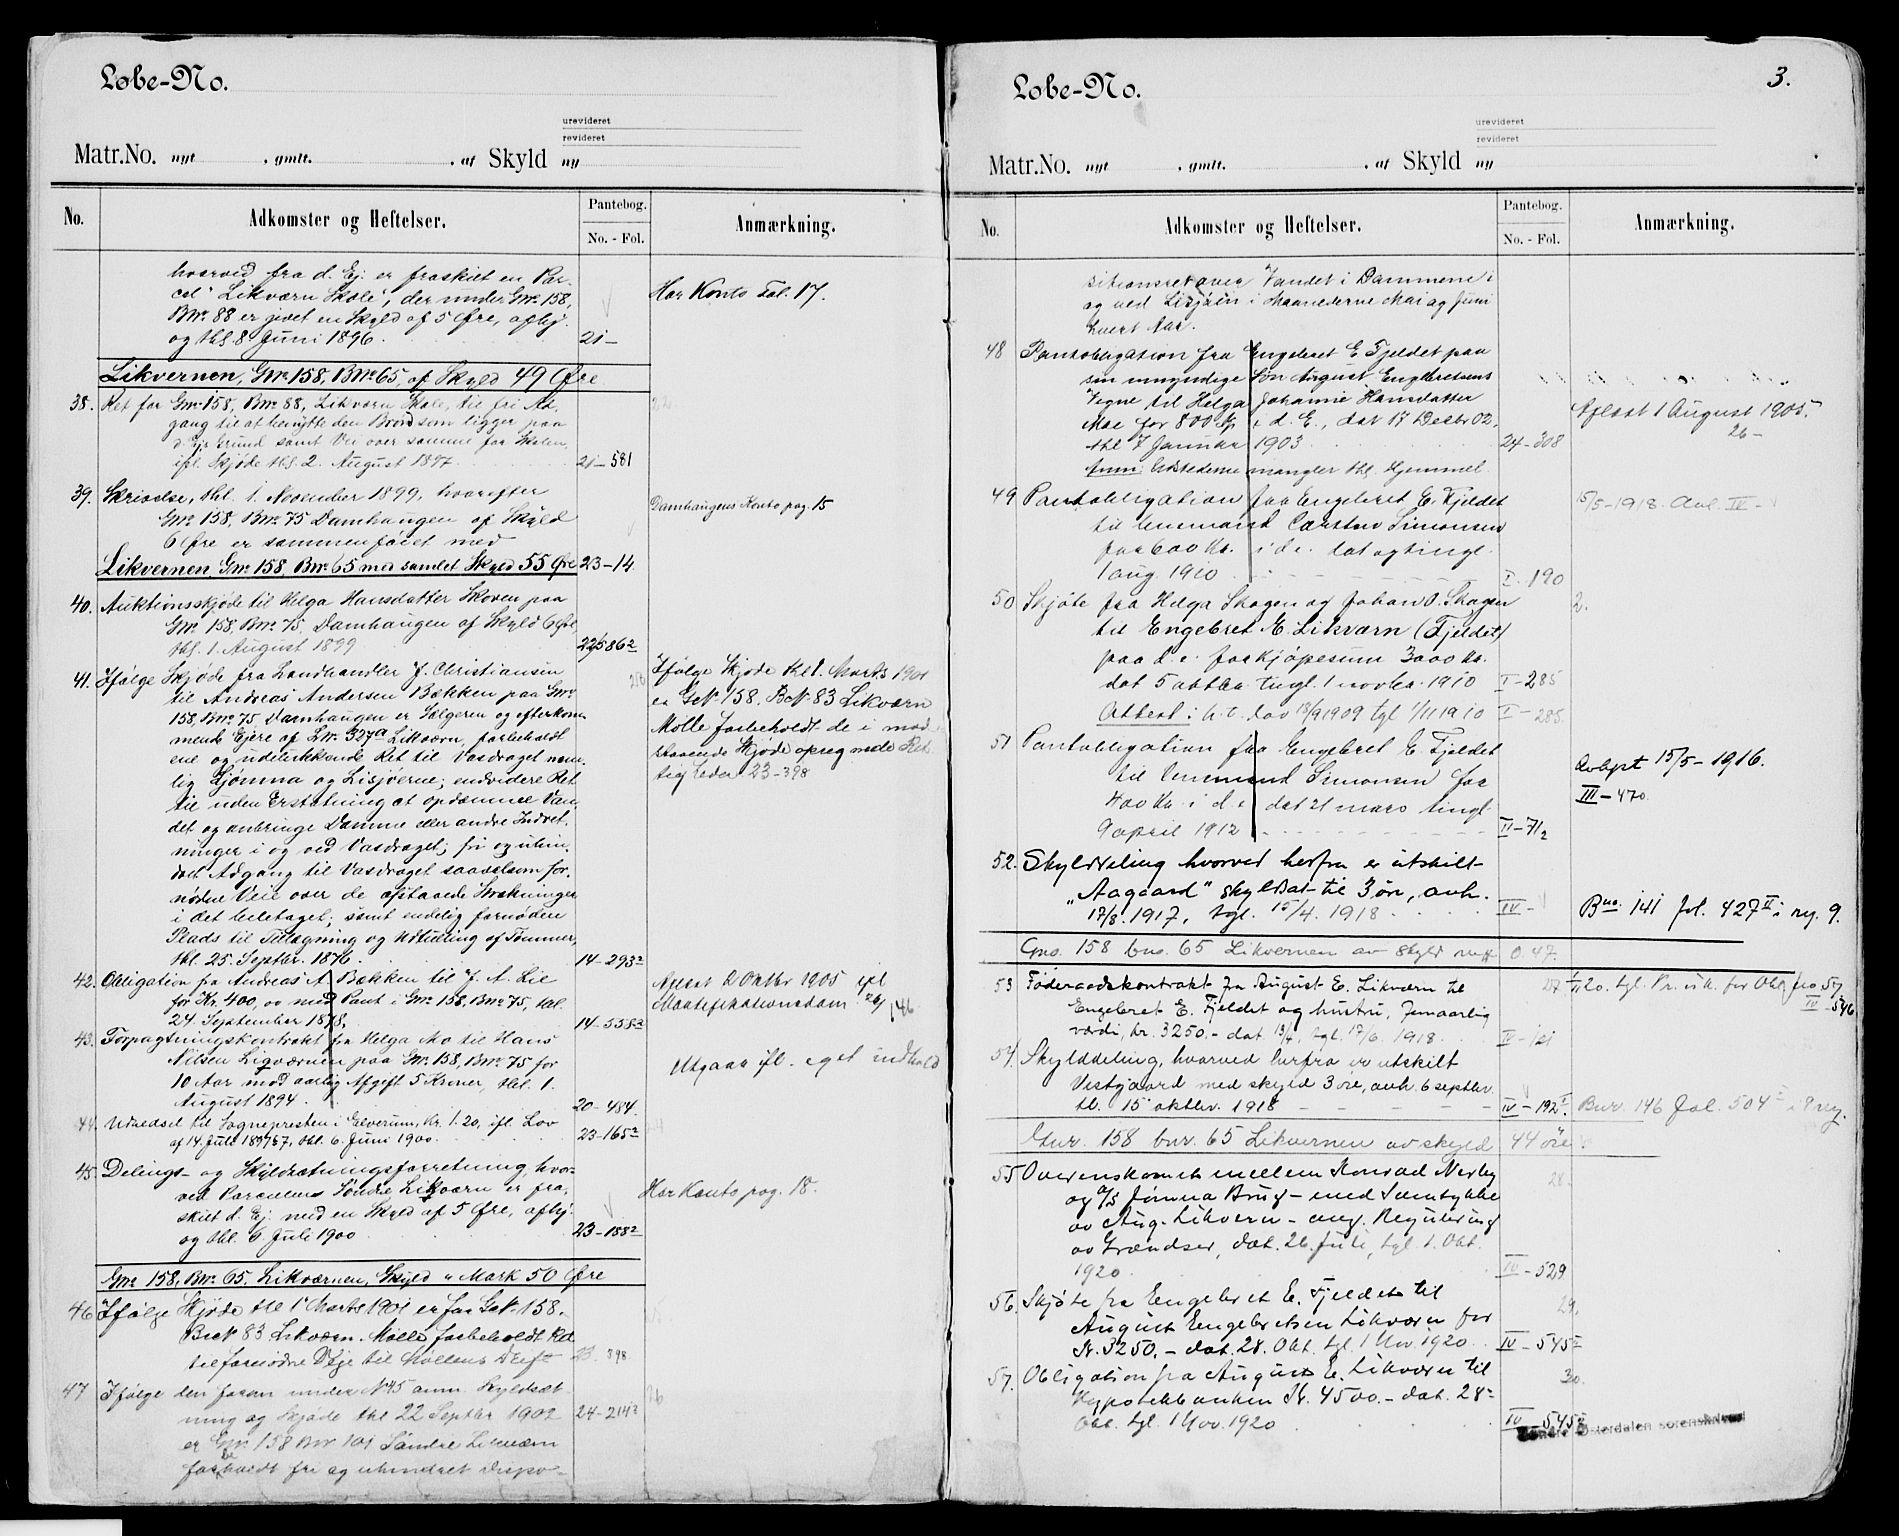 Løbe-No.
urevideret
revideret
Matr.No. nyt , gmlt. . af Skyld ny
No.
Adkomster og Heftelser.
Pantebog.
No. - Fol.
Anmærkning.
hvorved fra d. Ej. er fraskilt en Par-
cel "Likværn Skole", der under Gno 158,
Bno 88 er givet en Skyld af 5 Øre, afhj.
og thl. 8 Juni 1896. 21–
Har Konto Fol. 17.
Likvernen, Gno 158, Bno 65, af Skyld 49 Øre
38. Ret for Gno 158, Bno 88, Likværn Skole, til fri Ad-
gang til at benytte den Brønd som ligger paa
d. Ejs Grund samt Vei over samme for Skolen,
ifl. Skjøde thl. 2. August 1897. 21–581
39. Skrivelse, thl. 1. November 1899, hvorefter
Gno 158, Bno 75 Damhaugen af Skyld
6 Øre er sammenføiet med
Damhaugens Konto pag. 15
Likvernen, Gno 158, Bno 65 med samlet Skyld 55 Øre 23–14.
40. Auktionsskjøde til Helga Hansdatter Skoven paa
Gno 158, Bno 75, Damhaugen af Skyld 6 Øre
thl. 1. August 1899 22/586²
41. Ifølge Skjøde fra Landhandler J. Christiansen
til Andreas Andersen Bækken paa Gno
158, Bno 75 Damhaugen er Sælgeren og efterkom-
mende Ejere af LNo 327a Likværn, forbeholdt
ene og udelukkende Ret til Vasdraget nem-
lig Gjømma og Lisjøerne; endvidere Ret
til uden Erstatning at opdæmme Van-
det og anbringe Damme eller andre Indret-
ninger i og ved Vasdraget; fri og uhin-
dret Adgang til Vasdraget saavelsom for-
nødne Veie over de afstaaede Strækninger
i det hele taget; samt endelig fornøden
Plads til Tillægning og Udtælling af Tømmer,
thl. 25. Septbr. 1876. 14–293²
Ifølge Skjøde thl 1. Marts 1901
er GNo 158. BNo 83 Likværn
Mølle forbeholdt de i mod-
staaende Skjøde opreg nede Ret-
tigheder 23–398
42. Obligation fra Andreas A Bækken til J. A. Lie
for Kr. 400, oo med Pant i Gno 158, Bno 75, thl.
24. September 1878, 14–558²
Aflæst 2 Oktbr 1905 ifl
Mortifikationsdom. 26/146
43. Forpagtningskontrakt fra Helga Mo til Hans
Nilsen Ligværnen paa Gno 158, Bno 75 for
10 Aar mod aarlig Afgift 5 Kroner, thl. 1.
August 1894. 20–484.
Utgaar ifl. eget indhold
44. Udredsel til Sognepresten i Elverum, Kr. 1.20, ifl. Lov
af 14. Juli 1897 § 7, thl. 6. Juni 1900. 23–165²
45. Delings- og Skyldsætningsforretning, hvor-
ved Parcelen Søndre Likværn er fra-
skilt d. Ej. med en Skyld af 5 Øre, afhj.
og thl. 6 Juli 1900 23–188²
Har Konto pag. 18.
Gno 158, Bno 65. Likværnen, Skyld " Mark 50 Øre
46 Ifølge Skjøde thl 1 Marts 1901 er for GNo 158.
BNo 83 Likværn Mølle forbeholdt Ret
til fornødne Veje til Møllens Drift 23. 398
47 Ifølge den foran under No 45 anm. Skyldsæt-
ning og Skjøde thl 22 Septbr 1902 24–214²
er Gno 158 Bno 101 Søndre Likværn
forbeholdt fri og uhindret Dispo-
3.
Løbe-No.
urevideret
revideret
Matr.No. nyt , gmlt. . af Skyld ny
No.
Adkomster og Heftelser.
Pantebog.
No. - Fol.
Anmærkning.
sitionsret over Vandet i Dammene i
og ved Lisjøen i Maanederne Mai og Juni
hvert Aar.
48 Pantobligation fra Engebret E Fjeldet paa
sin umyndige Søn August Engebretsens
Vegne til Helga Johanne Hansdatter
Moe for 800 Kr i d. E., dat 17 Decbr 02,
thl 7 Januar 1903 24–308
Aflæst 1 August 1905.
26–
Anm: Udstederne mangler thl. Hjemmel.
49. Pantobligation fra Engebret E. Fjeldet
til Enemand Carsten Simonsen
for 600 Kr. i d.e. dat og tingl.
1 aug 1910 I–190
15/5–1918. Avl. IV–
50 Skjøte fra Helga Skogen og Johan O. Skogen
til Engebret E. Likværn (Fjeldet)
paa d.e. for kjøpesum 3000 Kr.
dat 5 oktbr. tingl. 1 novbr. 1910 I–285
2.
Attest i h. t. lov 18/9 1909 tgl 1/11 1910 I–285.
51 Pantobligation fra Engebret E. Fjeldet
til Enemand Simonsen for
400 Kr. i d. e dat 21 mars tingl
9 april 1912 II–71₂
Avlyst 15/5–1916.
III–470.
52. Skylddeling hvorved herfra er utskilt
"Aagaard" skyldsat til 3 øre, avh.
17/8. 1917, tgl. 15/4. 1918. IV–
Bno. 141 fol. 427 II i reg. 9.
Gno. 158 bno. 65 Likvernen av skyld mrk 0.47.
53 Føderaadskontrakt fra August E. Likværn til
Engebret E. Fjeldet og hustru, Femaarlig
værdi, kr. 3250.– dat 13/4, tgl. 17/6. 1918. IV–
1/11 20. tgl. Pr. vik. for Obl. fra 57
IV–546
54. Skylddeling, hvorved herfra er utskilt
Vestgaard med skyld 3 øre, avh. 6 septbr.
tl. 15 oktbr. 1918 IV–192¹
Bnr. 146 Fol. 504 i 9 reg.
Gnr. 158 bnr. 65 Likvernen av skyld 44 øre
55 Overenskomst mellem Konrad Nerby
og A/S Jømna Brug – med Samtykke
av Aug. Likvern – ang. Regulering
av Grændser, dat. 26. Juli, tgl. 1. Okt.
1920. IV–529
28.
56. Skjøte fra Engebret E. Fjeldet til
August Engebretsen Likværn for
Kr. 3250.– dat. 28. Okt. tgl. 1 Nov. 1920. IV–545²
29.
57. Obligation fra August E. Likværn til
Hypotekbanken Kr. 4500.– dat. 28–
Okt. tgl. 1 Nov. 1920 IV–545²
30.
Søndre Østerdalen sorenskriveri